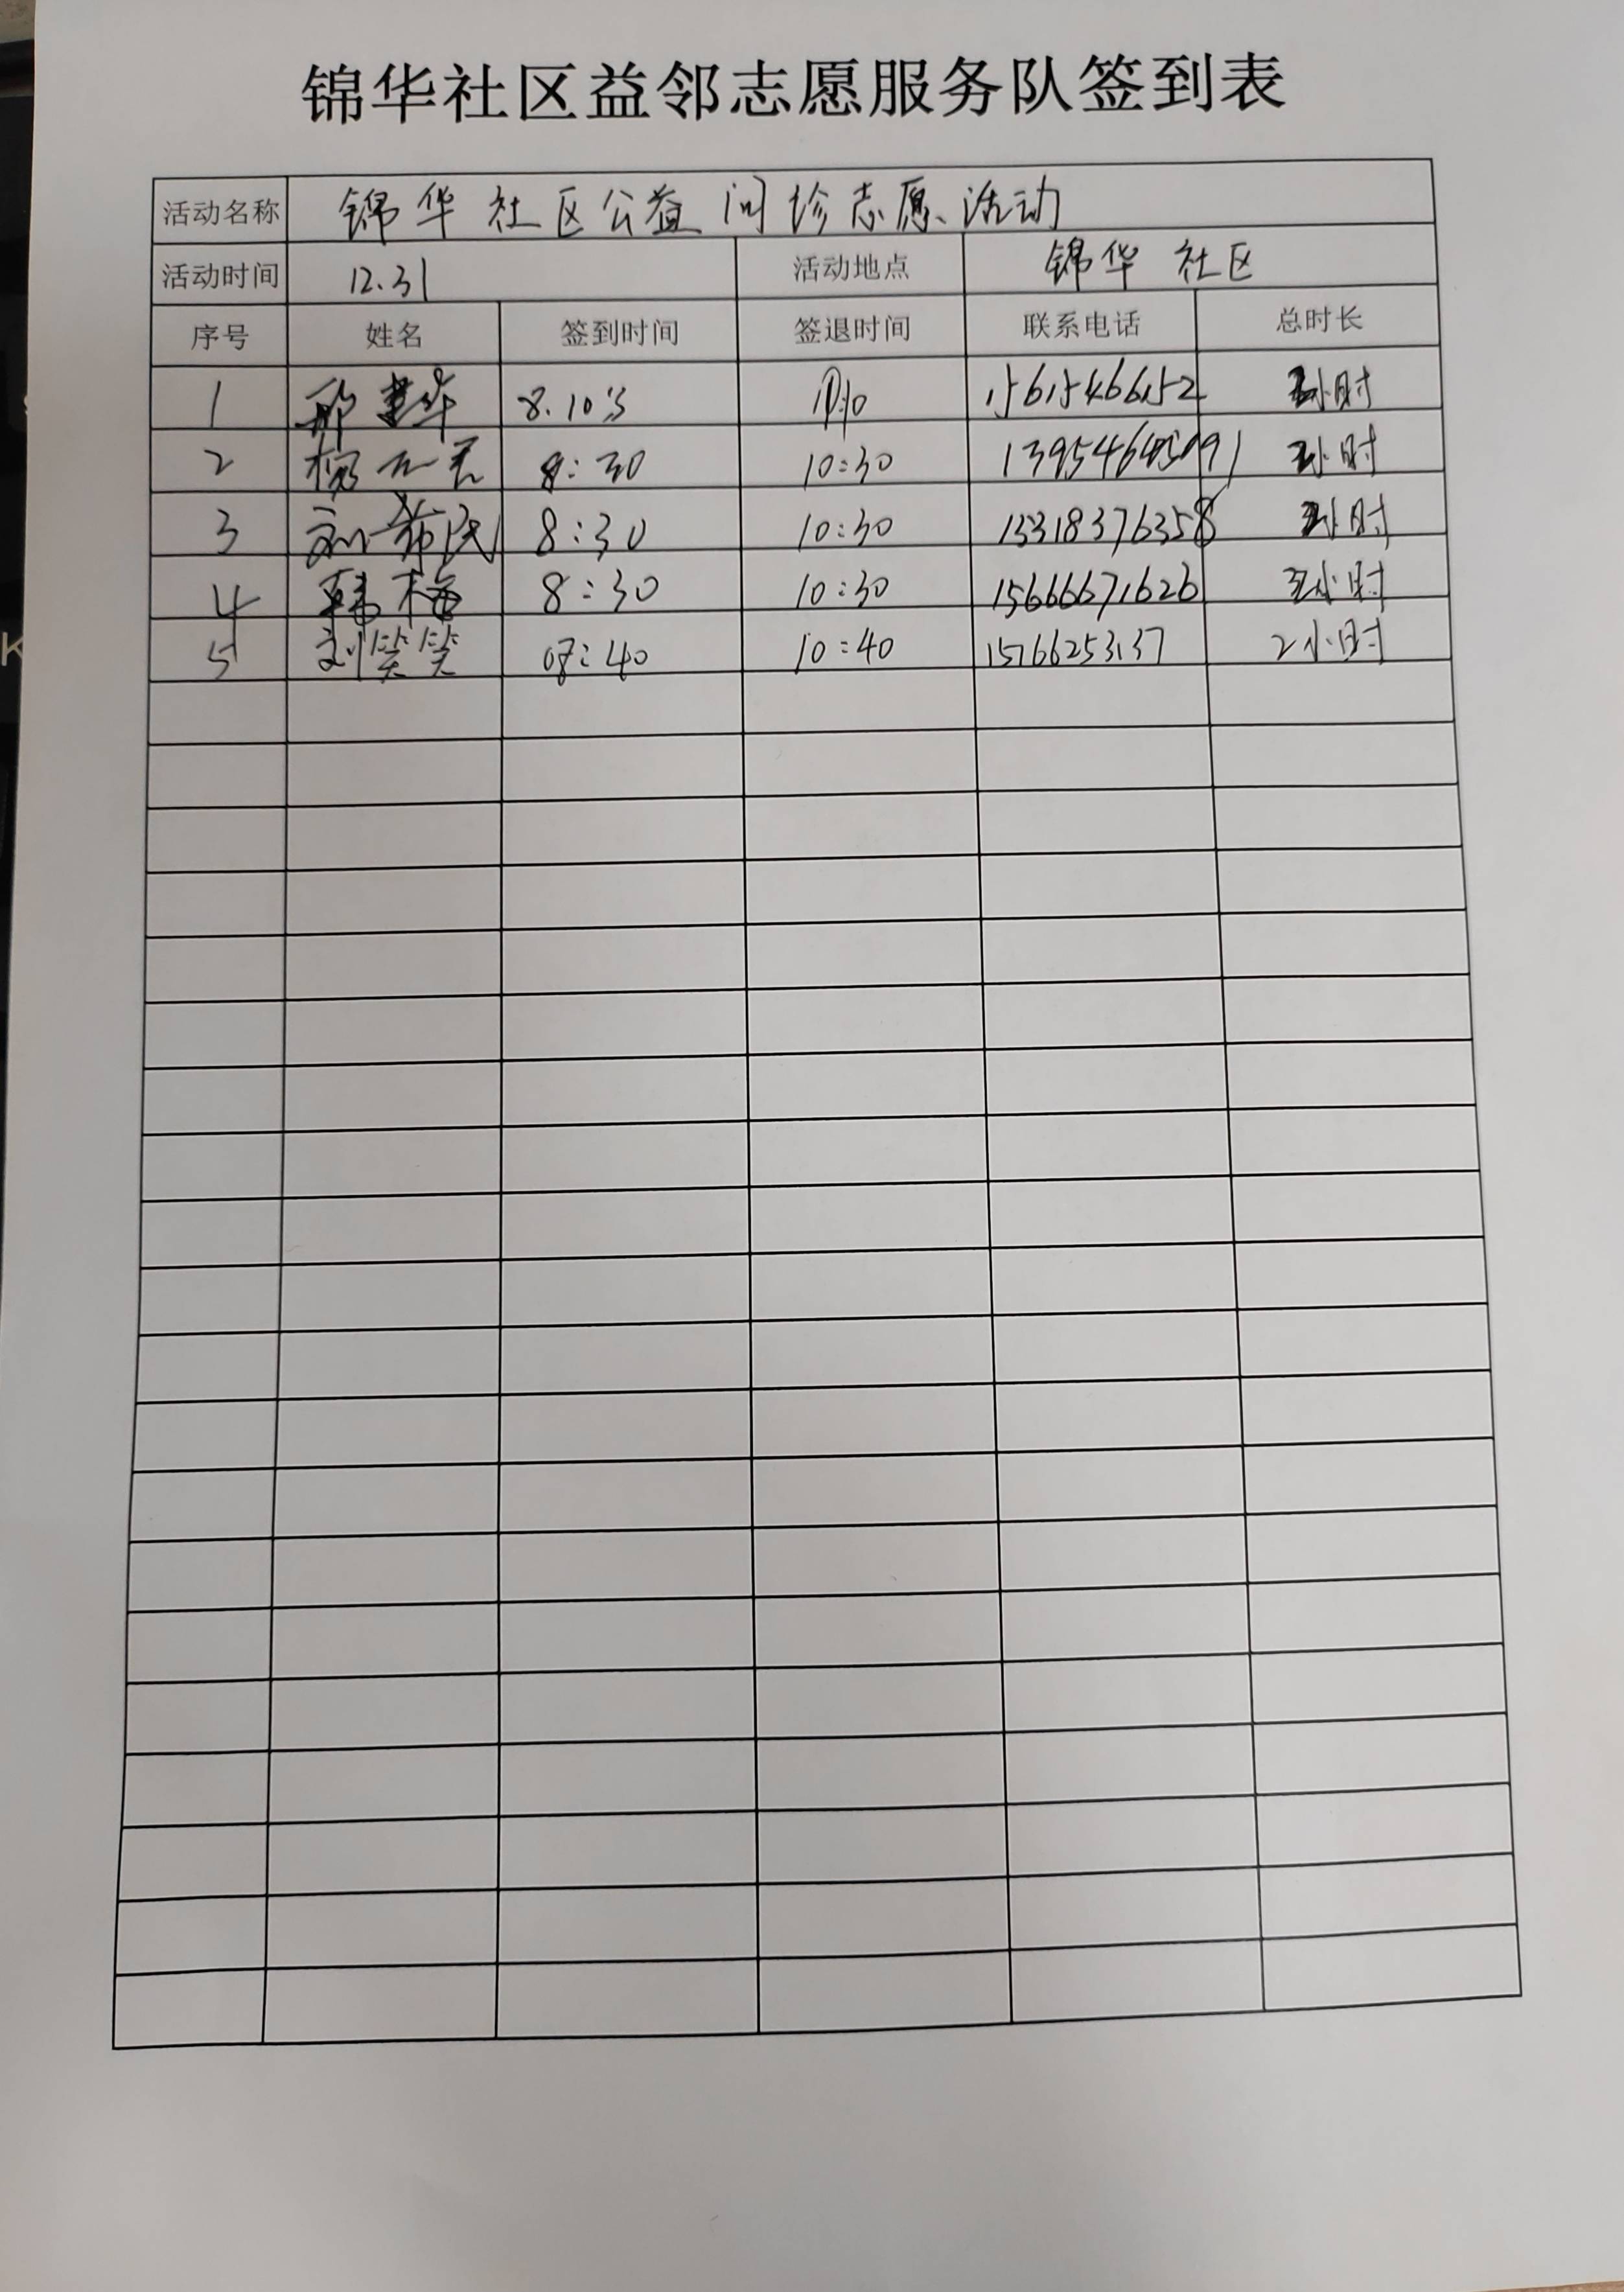 锦华社区益邻志愿服务队签到表
活动名称 锦华社区公益问诊志愿活动
活动时间 12.31 活动地点 锦华社区
序号 姓名 签到时间 签退时间 联系电话 总时长
1 华 8.10 15615466152 小时
2 杨 8:30 10:30 小时
3 刘 民 8:30 10:30 小时
4 韩梅 8:30 10:30 15666671626 小时
5 刘笑笑 08:40 10:40 2小时